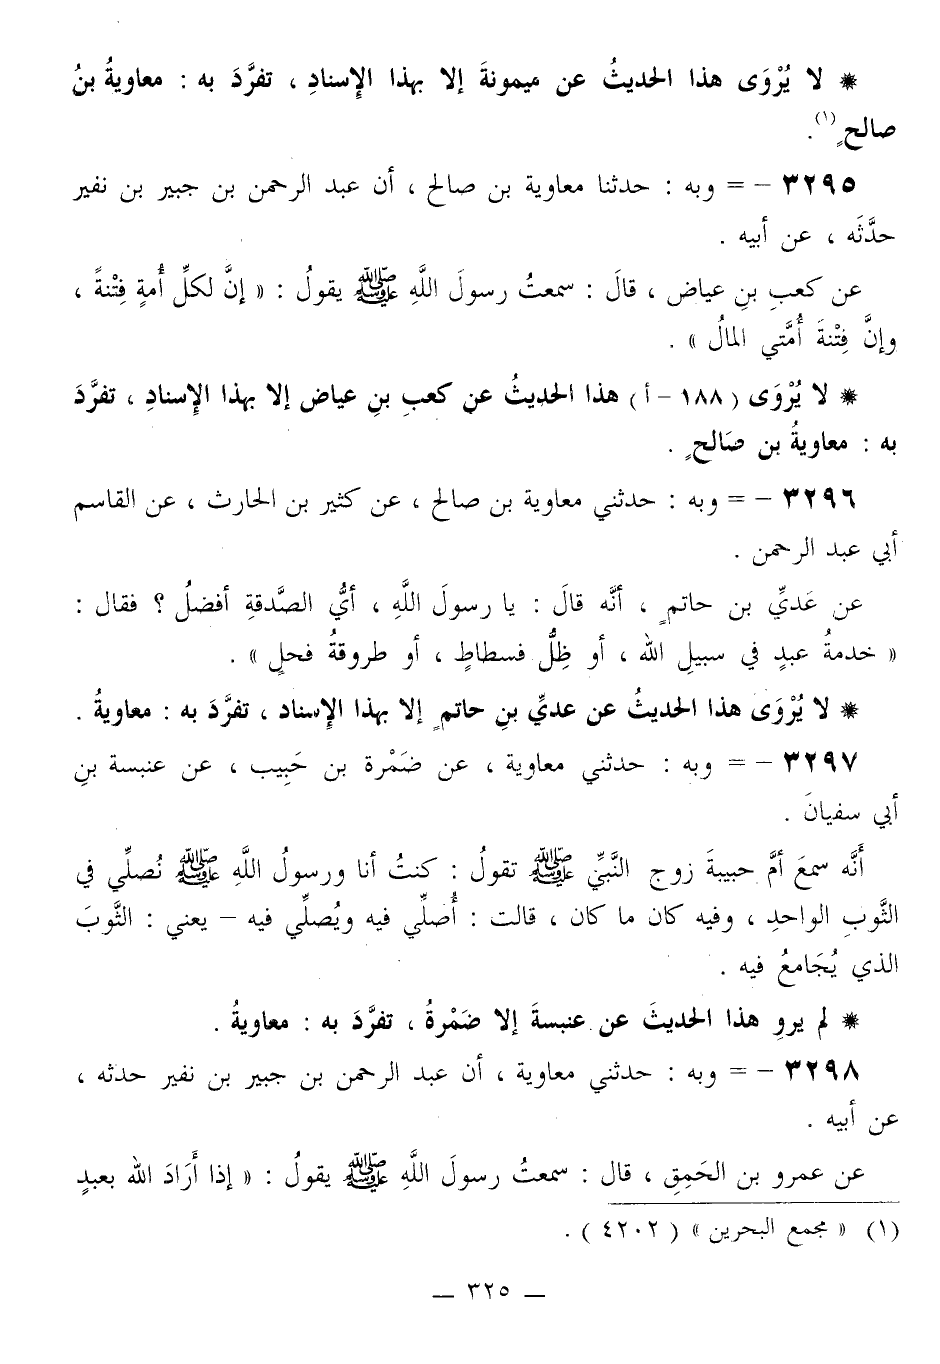 * لا يُرْوَى هذا الحديثُ عن ميمونةَ إلا بهذا الإسنادِ ، تفرَّدَ به : معاويةُ بنُ
صالحٍ(١).
٣٢٩٥ - = وبه : حدثنا معاوية بن صالح ، أن عبد الرحمن بن جبير بن نفير
حدَّثَه ، عن أبيه .
عن كعبِ بنِ عياض ، قالَ : سمعتُ رسولَ اللَّهِ ﷺ يقولُ : « إنَّ لكلِّ أُمةٍ فِتْنةً ،
وإنَّ فِتْنةَ أُمَّتي المالُ » .
* لا يُرْوَى (١٨٨ - أ) هذا الحديثُ عن كعبِ بنِ عياض إلا بهذا الإسنادِ ، تفرَّدَ
به : معاويةُ بن صَالحٍ .
٣٢٩٦ - = وبه : حدثني معاوية بن صالح ، عن كثير بن الحارث ، عن القاسم
أبي عبد الرحمن .
عن عَديِّ بن حاتمٍ ، أنَّه قالَ : يا رسولَ اللَّهِ ، أيُّ الصَّدقةِ أفضلُ ؟ فقال :
« خدمةُ عبدٍ في سبيلِ الله ، أو ظِلُّ فسطاطٍ ، أو طروقةُ فحلٍ » .
* لا يُرْوَى هذا الحديثُ عن عديِّ بنِ حاتمٍ إلا بهذا الإسناد ، تفرَّدَ به : معاويةُ .
٣٢٩٧ - = وبه : حدثني معاوية ، عن ضَمْرة بن حَبِيب ، عن عنبسة بنِ
أبي سفيانَ .
أنَّه سمعَ أمَّ حبيبةَ زوج النَّبيِّ ﷺ تقولُ : كنتُ أنا ورسولُ اللَّهِ ﷺ نُصلِّي في
الثَّوبِ الواحدِ ، وفيه كان ما كان ، قالت : أُصلِّي فيه ويُصلِّي فيه – يعني : الثَّوبَ
الذي يُجَامعُ فيه .
* لم يروِ هذا الحديثَ عن عنبسةَ إلا ضَمْرةُ ، تفرَّدَ به : معاويةُ .
٣٢٩٨ - = وبه : حدثني معاوية ، أن عبد الرحمن بن جبير بن نفير حدثه ،
عن أبيه .
عن عمرو بن الحَمِقِ ، قال : سمعتُ رسولَ اللَّهِ ﷺ يقولُ : « إذا أَرَادَ الله بعبدٍ
(١) « مجمع البحرين » ( ٤٢٠٢ ) .
— ٣٢٥ —